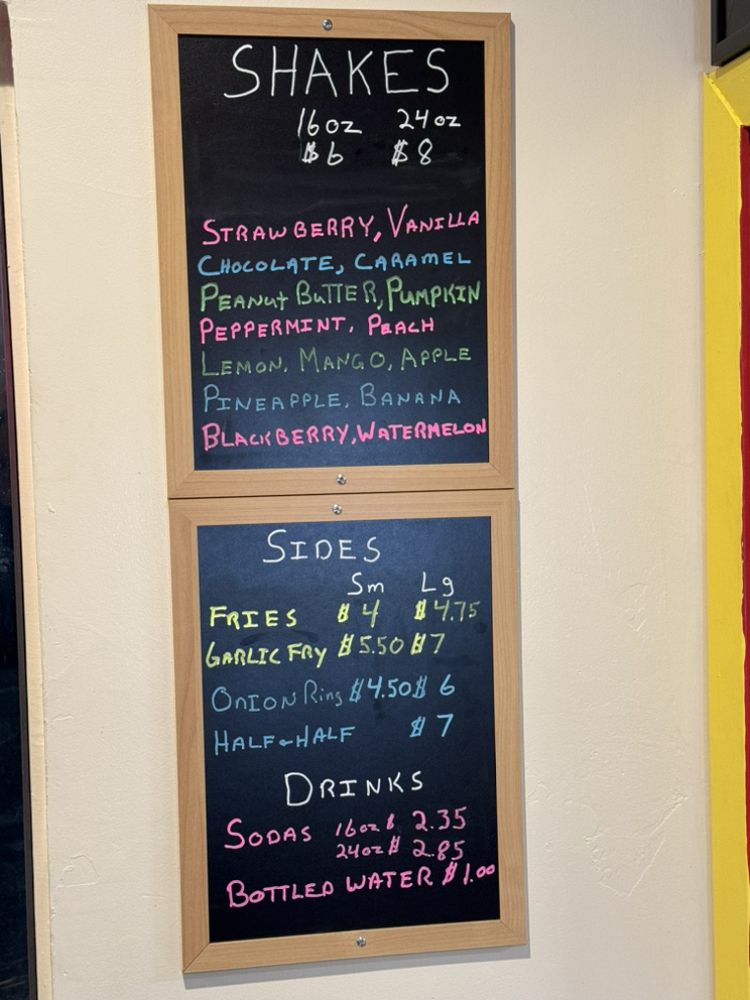 SHAKES
16oz 24oz
$6 $8
STRAWBERRY, VANILLA
CHOCOLATE, CARAMEL
PEANUT BUTTER, PUMPKIN
PEPPERMINT, PEACH
LEMON, MANGO, APPLE
PINEAPPLE, BANANA
BLACKBERRY, WATERMELON
SIDES
Sm Lg
FRIES $4 $4.75
GARLIC FRY $5.50 $7
ONION Ring $4.50 $6
HALF-HALF $7
DRINKS
SODAS 16oz $2.35
24oz $2.85
BOTTLED WATER $1.00